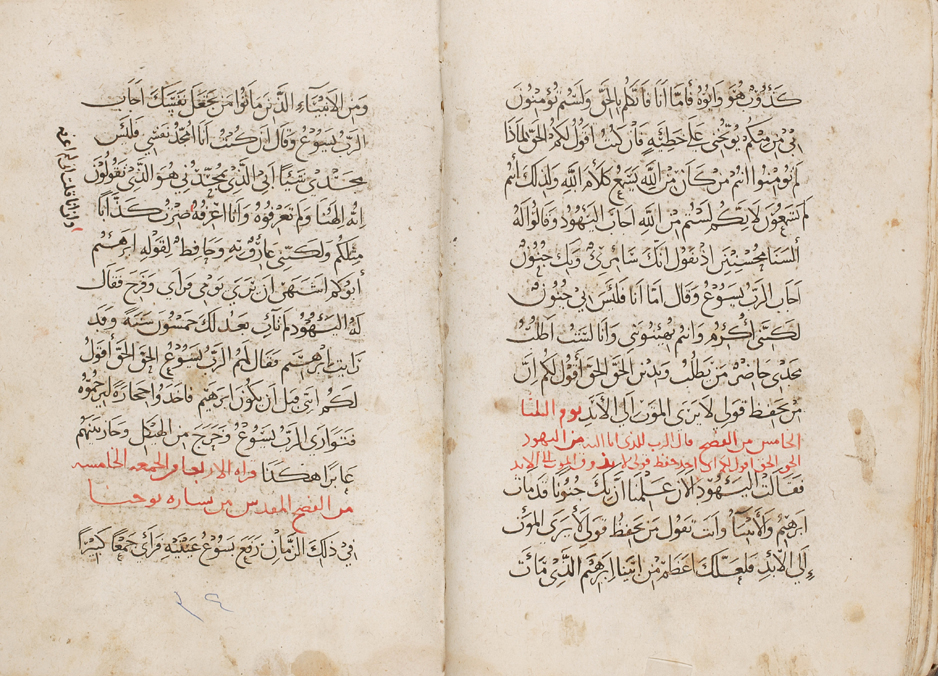 كذوب هو وابوه فاما انا فاتيكم بالحق ولستم تؤمنون
بي من منكم يوبخني على خطيئة فان كنت اقول لكم الحق لماذا
لم تومنوا انتم من كان من الله يسمع كلام الله ولذلك انتم
لم تسمعون لانكم لستم من الله اجاب اليهود وقالوا له
السنا محسنين اذ نقول انك سامري وبك جنون
اجاب الرب يسوع وقال اما انا فليس بي جنون
لكني اكرم وانتم تهينوني وانا لست اطلب
مجدي حاضر من يطلب ويدين الحق الحق اقول لكم ان
من حفظ قولي لا يرى الموت الى الابد يوم الثلثا
الخامس من الفصح قال الرب للذي اتا اليه من اليهود
الحق الحق اقول لكم ان احد حفظ قولي لا يذوق الموت الى الابد
فقالت اليهود الان علمنا ان بك جنونا قد مات
ابرهيم والانبيا وانت تقول من يحفظ قولي لا يرى الموت
إلى الابد فلعلك اعظم من ابينا ابرهيم الذي مات
ومن الانبياء الذين ماتوا من تجعل نفسك اجاب
الرب يسوع وقال ان كنت انا امجد نفسي فليس
مجدي شيئا ابي الذي يمجدني هو الذي تقولون
انه الهنا ولم تعرفوه وانا اعرفه صرت كذابا
مثلكم ولكني عارف به وحافظ لقوله ابرهيم
أبوكم اشتهى ان يرى يومي فراى وفرح فقال
له اليهود لم تات بعد لك خمسون سنة وقد
رايت ابرهيم فقال لهم الرب يسوع الحق الحق أقول
لكم انني قبل ان يكون ابرهيم فاخذوا حجارة ليرجموه
فتوارى الرب يسوع وخرج من الهيكل وجاز بينهم
عابرا هكذا قراه الاربعا والجمعه الخامسه
من الفصح المقدس من بشاره يوحنا
في ذلك الزمان رفع يسوع عينيه فراى جمعا كثيرا
وان انا قلت اني لم اعرفه
٣٤